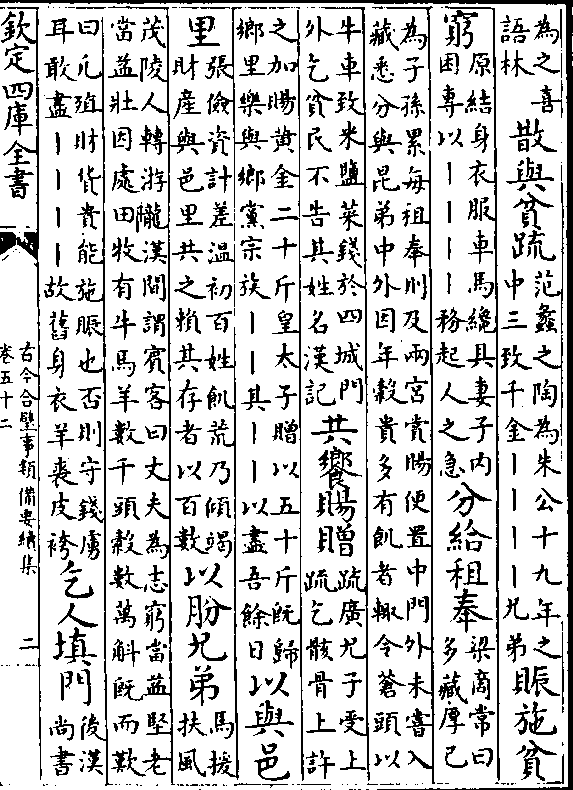 為之喜
語林
散與貧疏
范蠡之陶為朱公十九年之
中三致千金丨丨丨丨兄弟
賑施貧
窮
原結身衣服車馬纔具妻子内
困専以丨丨丨丨務起人之急
分給租奉
梁商常曰
多藏厚已
為子孫累每祖奉則及兩宮賞賜便置中門外未嘗入
藏悉分與昆弟中外因年穀貴多有飢者輒令蒼頭以
牛車致米鹽菜錢於四城門
外乞貧民不告其姓名漢記
共饗賜贈
疏廣兄子受上
疏乞骸骨上許
之加賜黄金二十斤皇太子贈以五十斤既歸
鄉里樂與鄉黨宗族丨丨其丨丨以盡吾餘日
以與邑
里
張儉資計差温初百姓飢荒乃傾竭
財産與邑里共之賴其存者以百數
以肦兄弟
馬援
扶風
茂陵人轉游隴漢間謂賓客曰丈夫為志窮當益堅老
當益壯因處田牧有牛馬羊數千頭穀數萬斛既而歎
曰凡殖財貨貴能施賑也否則守錢虜
耳敢盡丨丨丨丨故舊身衣羊裘皮袴
乞人填門
後漢
尚書
欽定四庫全書
古今合璧事類備要續集
卷五十二
二